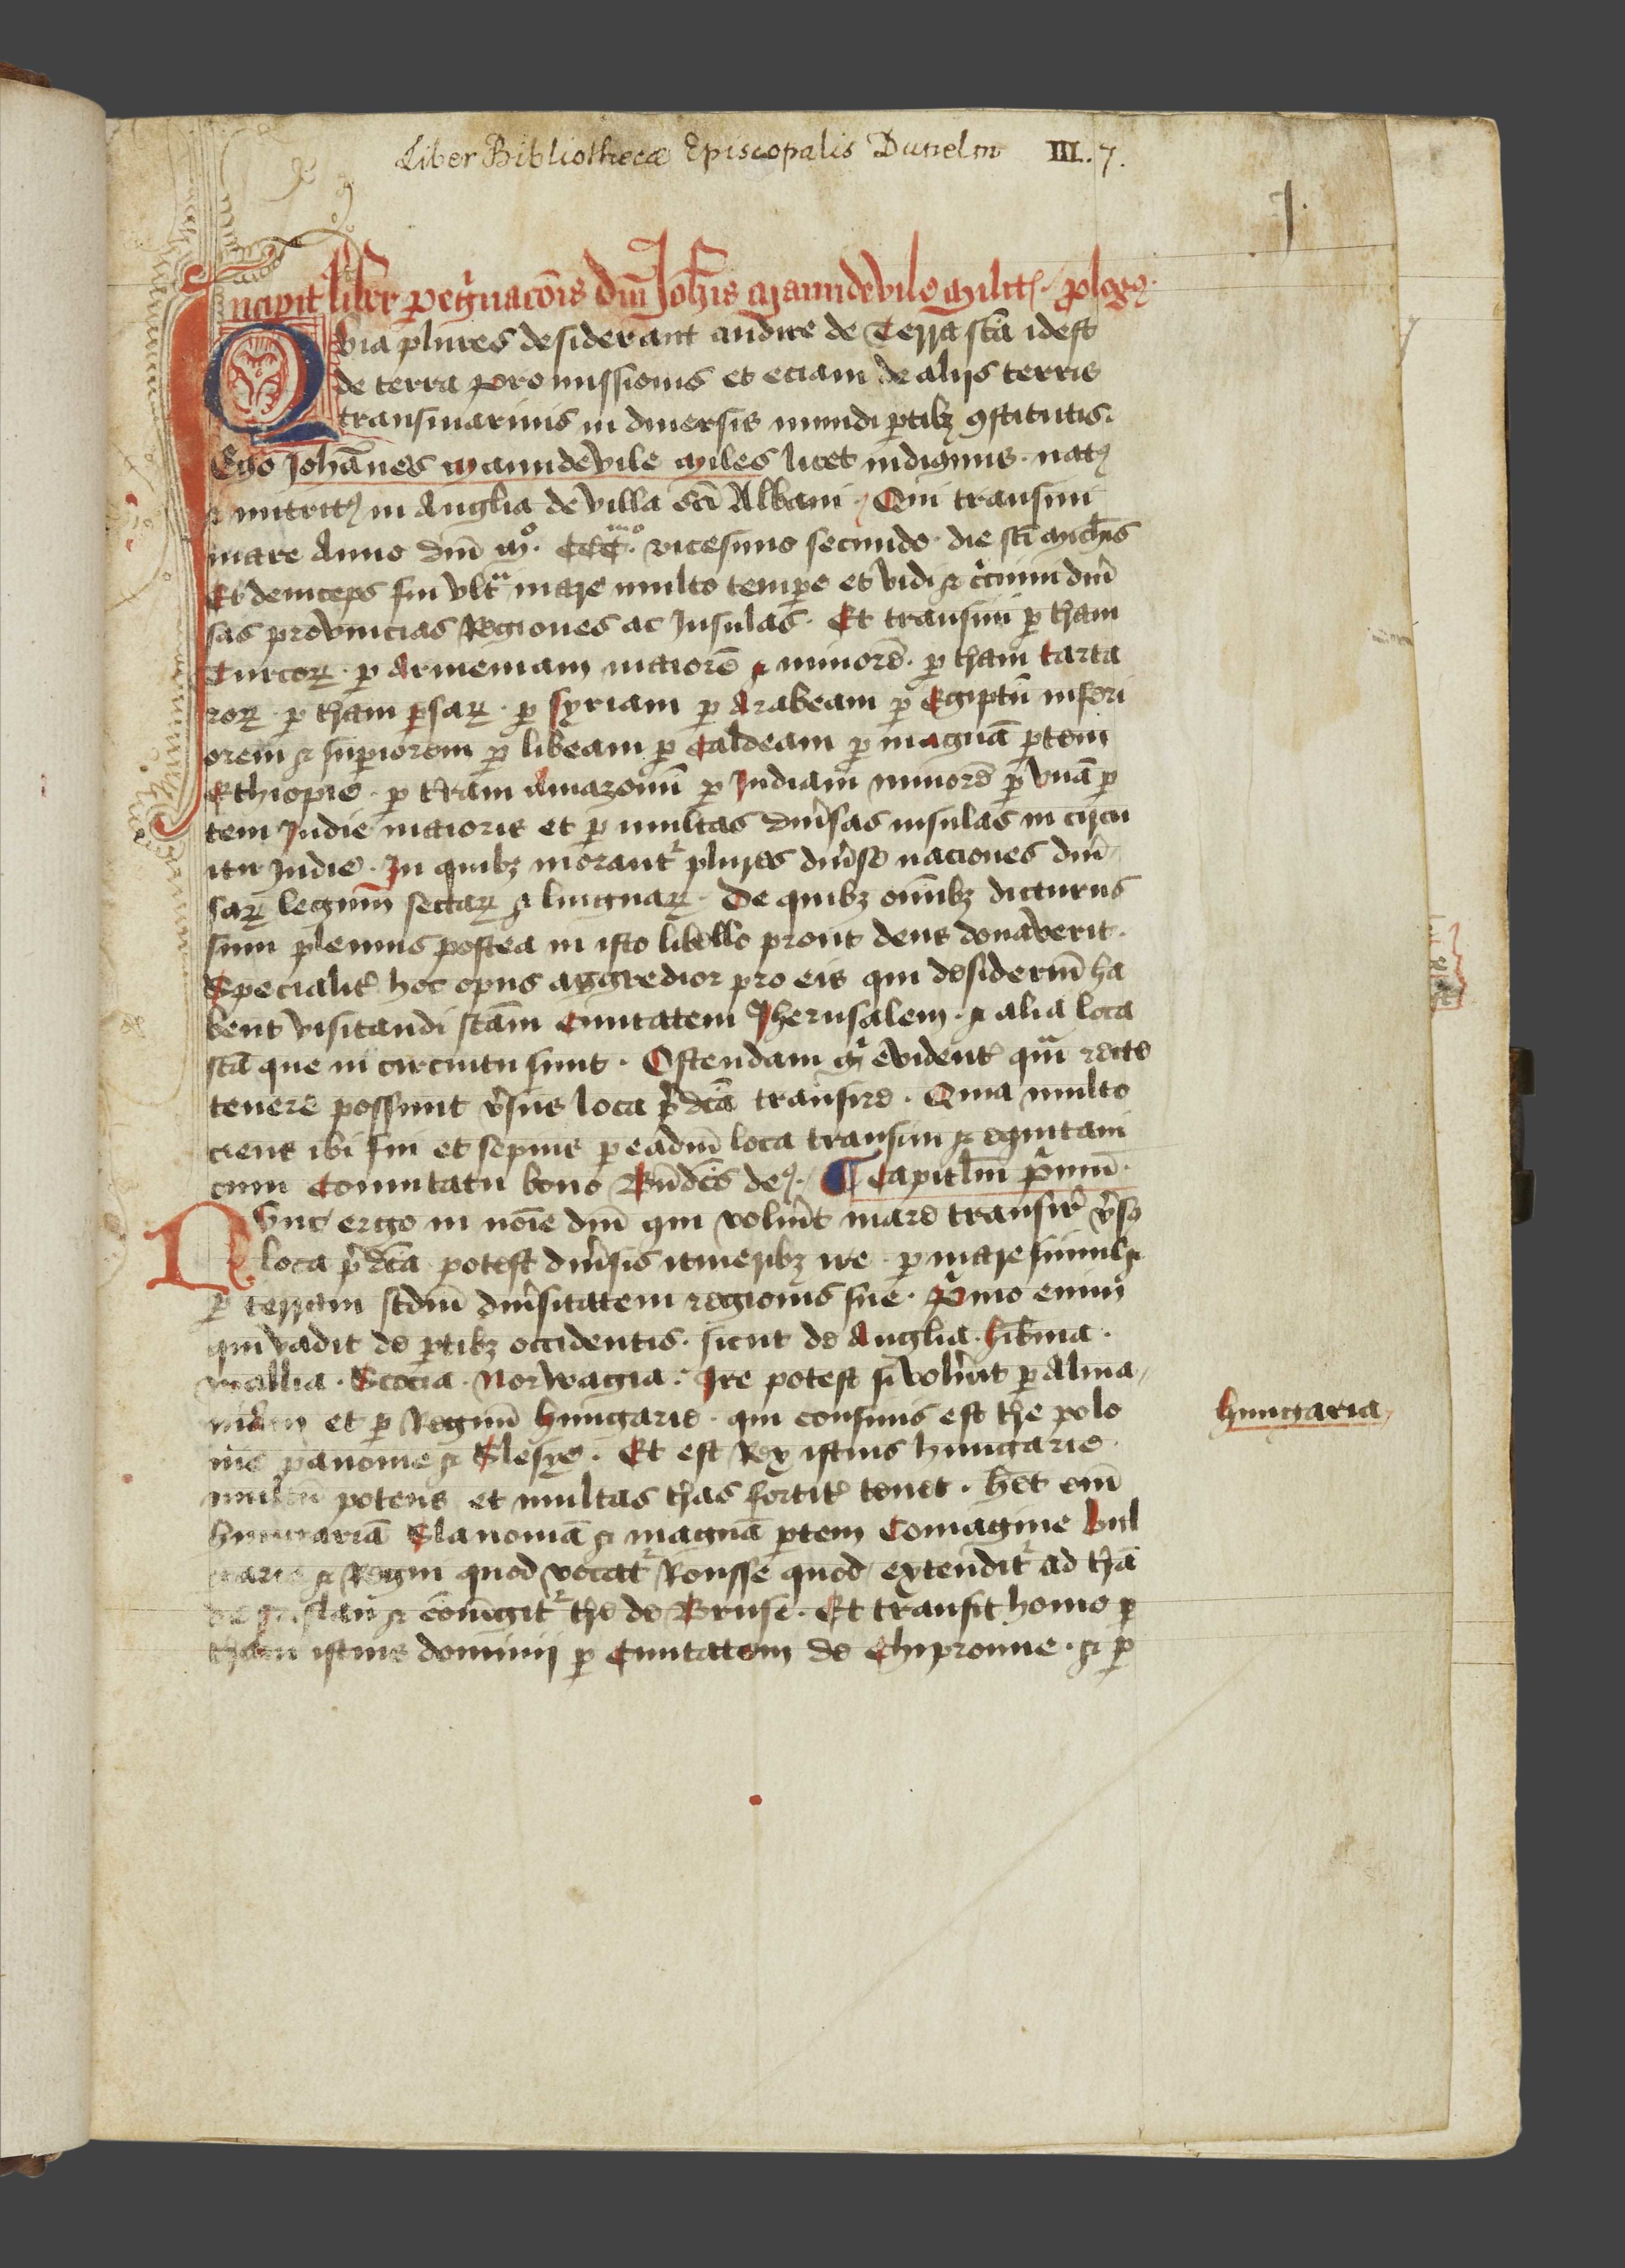 Liber Bibliothecæ Episcopalis Dunelm III. 7.
1.
Incipit liber peg̃nac̃ois dñi Joħis Maundevile Milit̃. plog9.
Quia plures desiderant audire de Terra sc̃a id est
de terra promissionis et eciam de alijs terris
transmarinis in diuersis mundi ptibꝫ ꝯstitutis.
Ego Johãnes Maundevile Miles licet indignus. natꝰ
⁊ nutritꝰ in Anglia de villa sc̃i Albani. Qui transiui
mare Anno dñi Mº. CCCº. vicesimo secundo. die sc̃i Mich̃is
Et deinceps fui vltᵃ mare multo tempe et vidi ⁊ c̃cuiui diũ
sas prouincias Regiones ac Insulas. Et transiui ꝑ t̃ram
Turcoꝝ. ꝑ Armeniam maiorẽ ⁊ minorẽ. ꝑ t̃ram tarta
roꝝ. ꝑ t̃ram psaꝝ. ꝑ Syriam ꝑ Arabeam ꝑ Egiptũ inferi
orem ⁊ supiorem ꝑ libeam ꝑ Caldeam ꝑ magnã ptem
Ethiopie. ꝑ t̃ram Amazonũ ꝑ Indiam minorẽ ꝑ vnã ꝑ
tem Indie maioris et ꝑ multas diũsas insulas in circu
itu Indie. In quibꝫ morant̃ plures diũse naciones diũ
saꝝ legum sectaꝝ ⁊ linguaꝝ. De quibꝫ om̃ibꝫ dicturus
sum plenius postea in isto libello prout deus donaverit.
Specialit̃ hoc opus aggredior pro eis qui desideriũ ha
bent visitandi sc̃am Ciuitatem Jherusalem. ⁊ alia loca
sc̃a que in circuitu sunt. Ostendam g̃ evident̃ qũ recte
tenere possunt v̉sus loca p̉dc̃a transire. Quia multo
ciens ibi fui et sepius ꝑ eadm̃ loca transiui ⁊ equitaui
cum Comitatu bono Bñdc̃s deꝰ. ¶ Capitlm̃ Pᵢmũ.
Nunc ergo in noĩe dñi qui volũit mare transir̃ v̉s9
loca p̉dc̃a potest diũsis itineribꝫ ire. ꝑ mare simul ⁊
ꝑ terram scdm̃ diũsitatem regionis sue. Pᵢmo enim
qui vadit de ptibꝫ occidentis. sicut de Anglia. hib̃nia.
wallia. Scocia. Norwagia. Ire potest si volũit ꝑ Alma
niam et ꝑ Regnũ hungarie. qui confinis est t̃re polo
nie panonie ⁊ Slesye. Et est Rex istius hungarie
multũ potens et multas t̃ras fortit̃ tenet. het em̃
hungariã Slanoniã ⁊ magnã ptem Comagine bul
garie ⁊ Regm̃ quod vocat̃ Rousse quod extendit̃ ad t̃rã
⁊ cõiũgit̃ t̃re de Bruse. Et transit homo ꝑ
t̃ram istius dominij ꝑ Ciuitatem de Chipronne. ⁊ ꝑ
hungaria